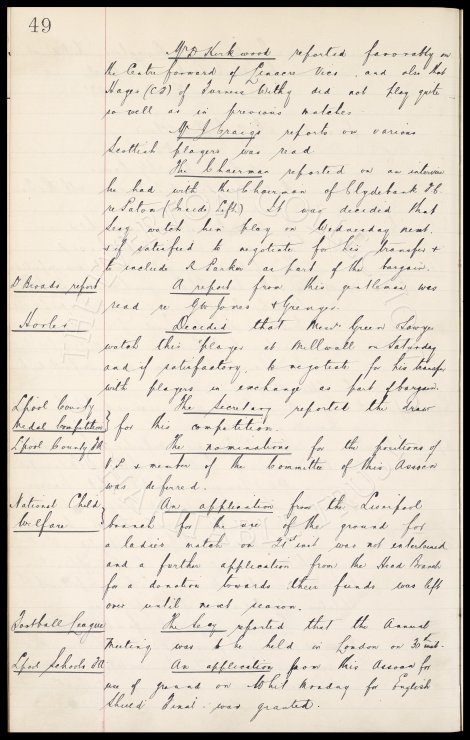 49
Mr D. Kirkwood reported favorably on
the Centre forward of Linacre Vics, and also that
Hages (CH) of Furness Withy did not play quite
so well as in previous matches.
Mr J Craigs reports on various
Scottish players was read.
The Chairman reported on an interview
he had with the Chairman of Clydebank FC
re Paton (Inside left). It was decided that
Secy watch him play on Wednesday next.
& if satisfied to negotiate for his transfer &
to include A Parker as part of the bargain.
Dr Broads report
A report from this gentleman was
read re Gw Jones & Grenyer.
Howles
Decided that Messrs Green Sawyer
watch this player at Millwall on Saturday
and if satisfactory, to negotiate for his transfer
with players in exchange as part of bargain.
Lpool County
Medal Competition
The Secretary reported the draw
for this competition.
Lpool County FA
The nominations for the positions of
V.P. & member of the Committee of this Assocn
was deferred.
National Child
Welfare
An application from the Liverpool
branch for the use of the ground for
a ladies match on 21st inst was not entertained
and a further application from the Head Branch
for a donation towards their funds was left
over until next season.
Football League
The Secy reported that the Annual
Meeting was to be held in London on 30th inst.
Lpool Schools FA
An application from this Assocn for
use of ground on Whit Monday for English
Shield Final was granted.